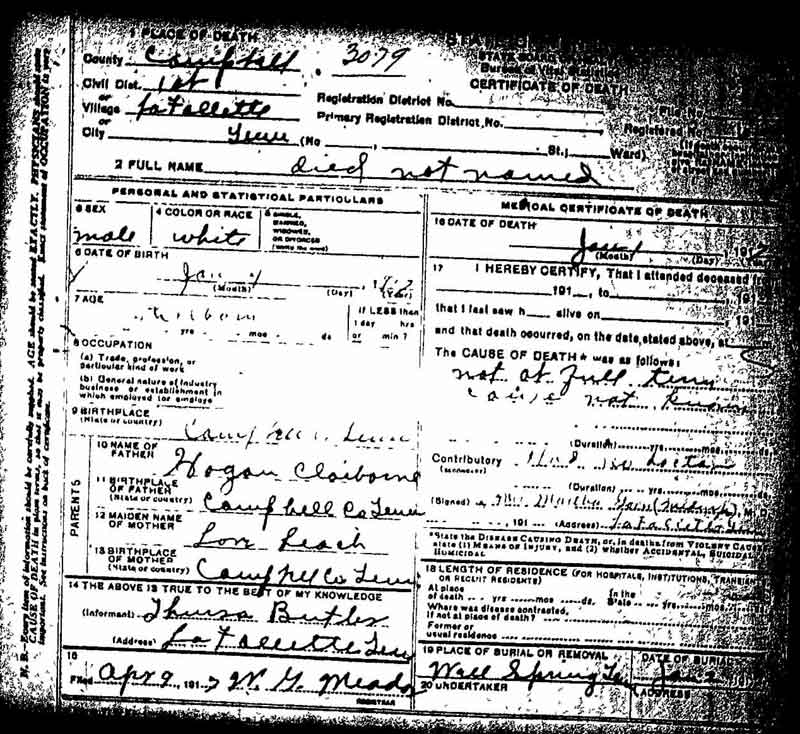 1 PLACE OF DEATH
County Campbell
3079
Civil Dist. 1st
or
Village LaFollette
or
City Tenn (No , St.; Ward)
Registration District No.
Primary Registration District No.
Bureau of Vital Statistics
CERTIFICATE OF DEATH
File No
Registered No
2 FULL NAME died not named
PERSONAL AND STATISTICAL PARTICULARS
3 SEX
male
4 COLOR OR RACE
white
5 SINGLE,
MARRIED,
WIDOWED,
OR DIVORCED
(Write the word)
6 DATE OF BIRTH
Jan
(Month) (Day) (Year)
7 AGE
yrs mos ds
If LESS than
1 day hrs
or min ?
8 OCCUPATION
(a) Trade, profession, or
particular kind of work
(b) General nature of industry
business or establishment in
which employed (or employe
9 BIRTHPLACE
(State or country)
Campbell Tenn
PARENTS
10 NAME OF
FATHER
Hogan Claiborne
11 BIRTHPLACE
OF FATHER
(State or country)
Campbell Co Tenn
12 MAIDEN NAME
OF MOTHER
13 BIRTHPLACE
OF MOTHER
(State or country)
Campbell Co Tenn
14 THE ABOVE IS TRUE TO THE BEST OF MY KNOWLEDGE
(Informant) Butler
(Address) LaFollette Tenn
15
Filed Apr 9 1917 W. G. Meador
REGISTRAR
MEDICAL CERTIFICATE OF DEATH
16 DATE OF DEATH
Jan 1 191
(Month) (Day)
17 I HEREBY CERTIFY, That I attended deceased from
191 , to 191
that I last saw h alive on 191
and that death occurred, on the date stated above, at
The CAUSE OF DEATH * was as follows:
not at full term
cause not known
(Duration) yrs. mos. ds
Contributory Had no Doctor
(SECONDARY)
(Duration) yrs. mos. ds
(Signed) M. D.
191 (Address)
*State the DISEASE CAUSING DEATH, or, in deaths from VIOLENT CAUSES
state (1) MEANS OF INJURY, and (2) whether ACCIDENTAL, SUICIDAL
HOMICIDAL
18 LENGTH OF RESIDENCE (FOR HOSPITALS, INSTITUTIONS, TRANSIENT
OR RECENT RESIDENTS)
At place
of death yrs mos ds.
In the
State yrs. mos
Where was disease contracted,
if not at place of death?
Former or
usual residence
19 PLACE OF BURIAL OR REMOVAL
Well Spring Ten
DATE OF BURIAL
Jan 2
20 UNDERTAKER
ADDRESS
N. B.—Every item of information should be carefully supplied. AGE should be stated EXACTLY. PHYSICIANS should state
CAUSE OF DEATH in plain terms, so that it may be properly classified. Exact statement of OCCUPATION is very
important. See instructions on back of certificate.